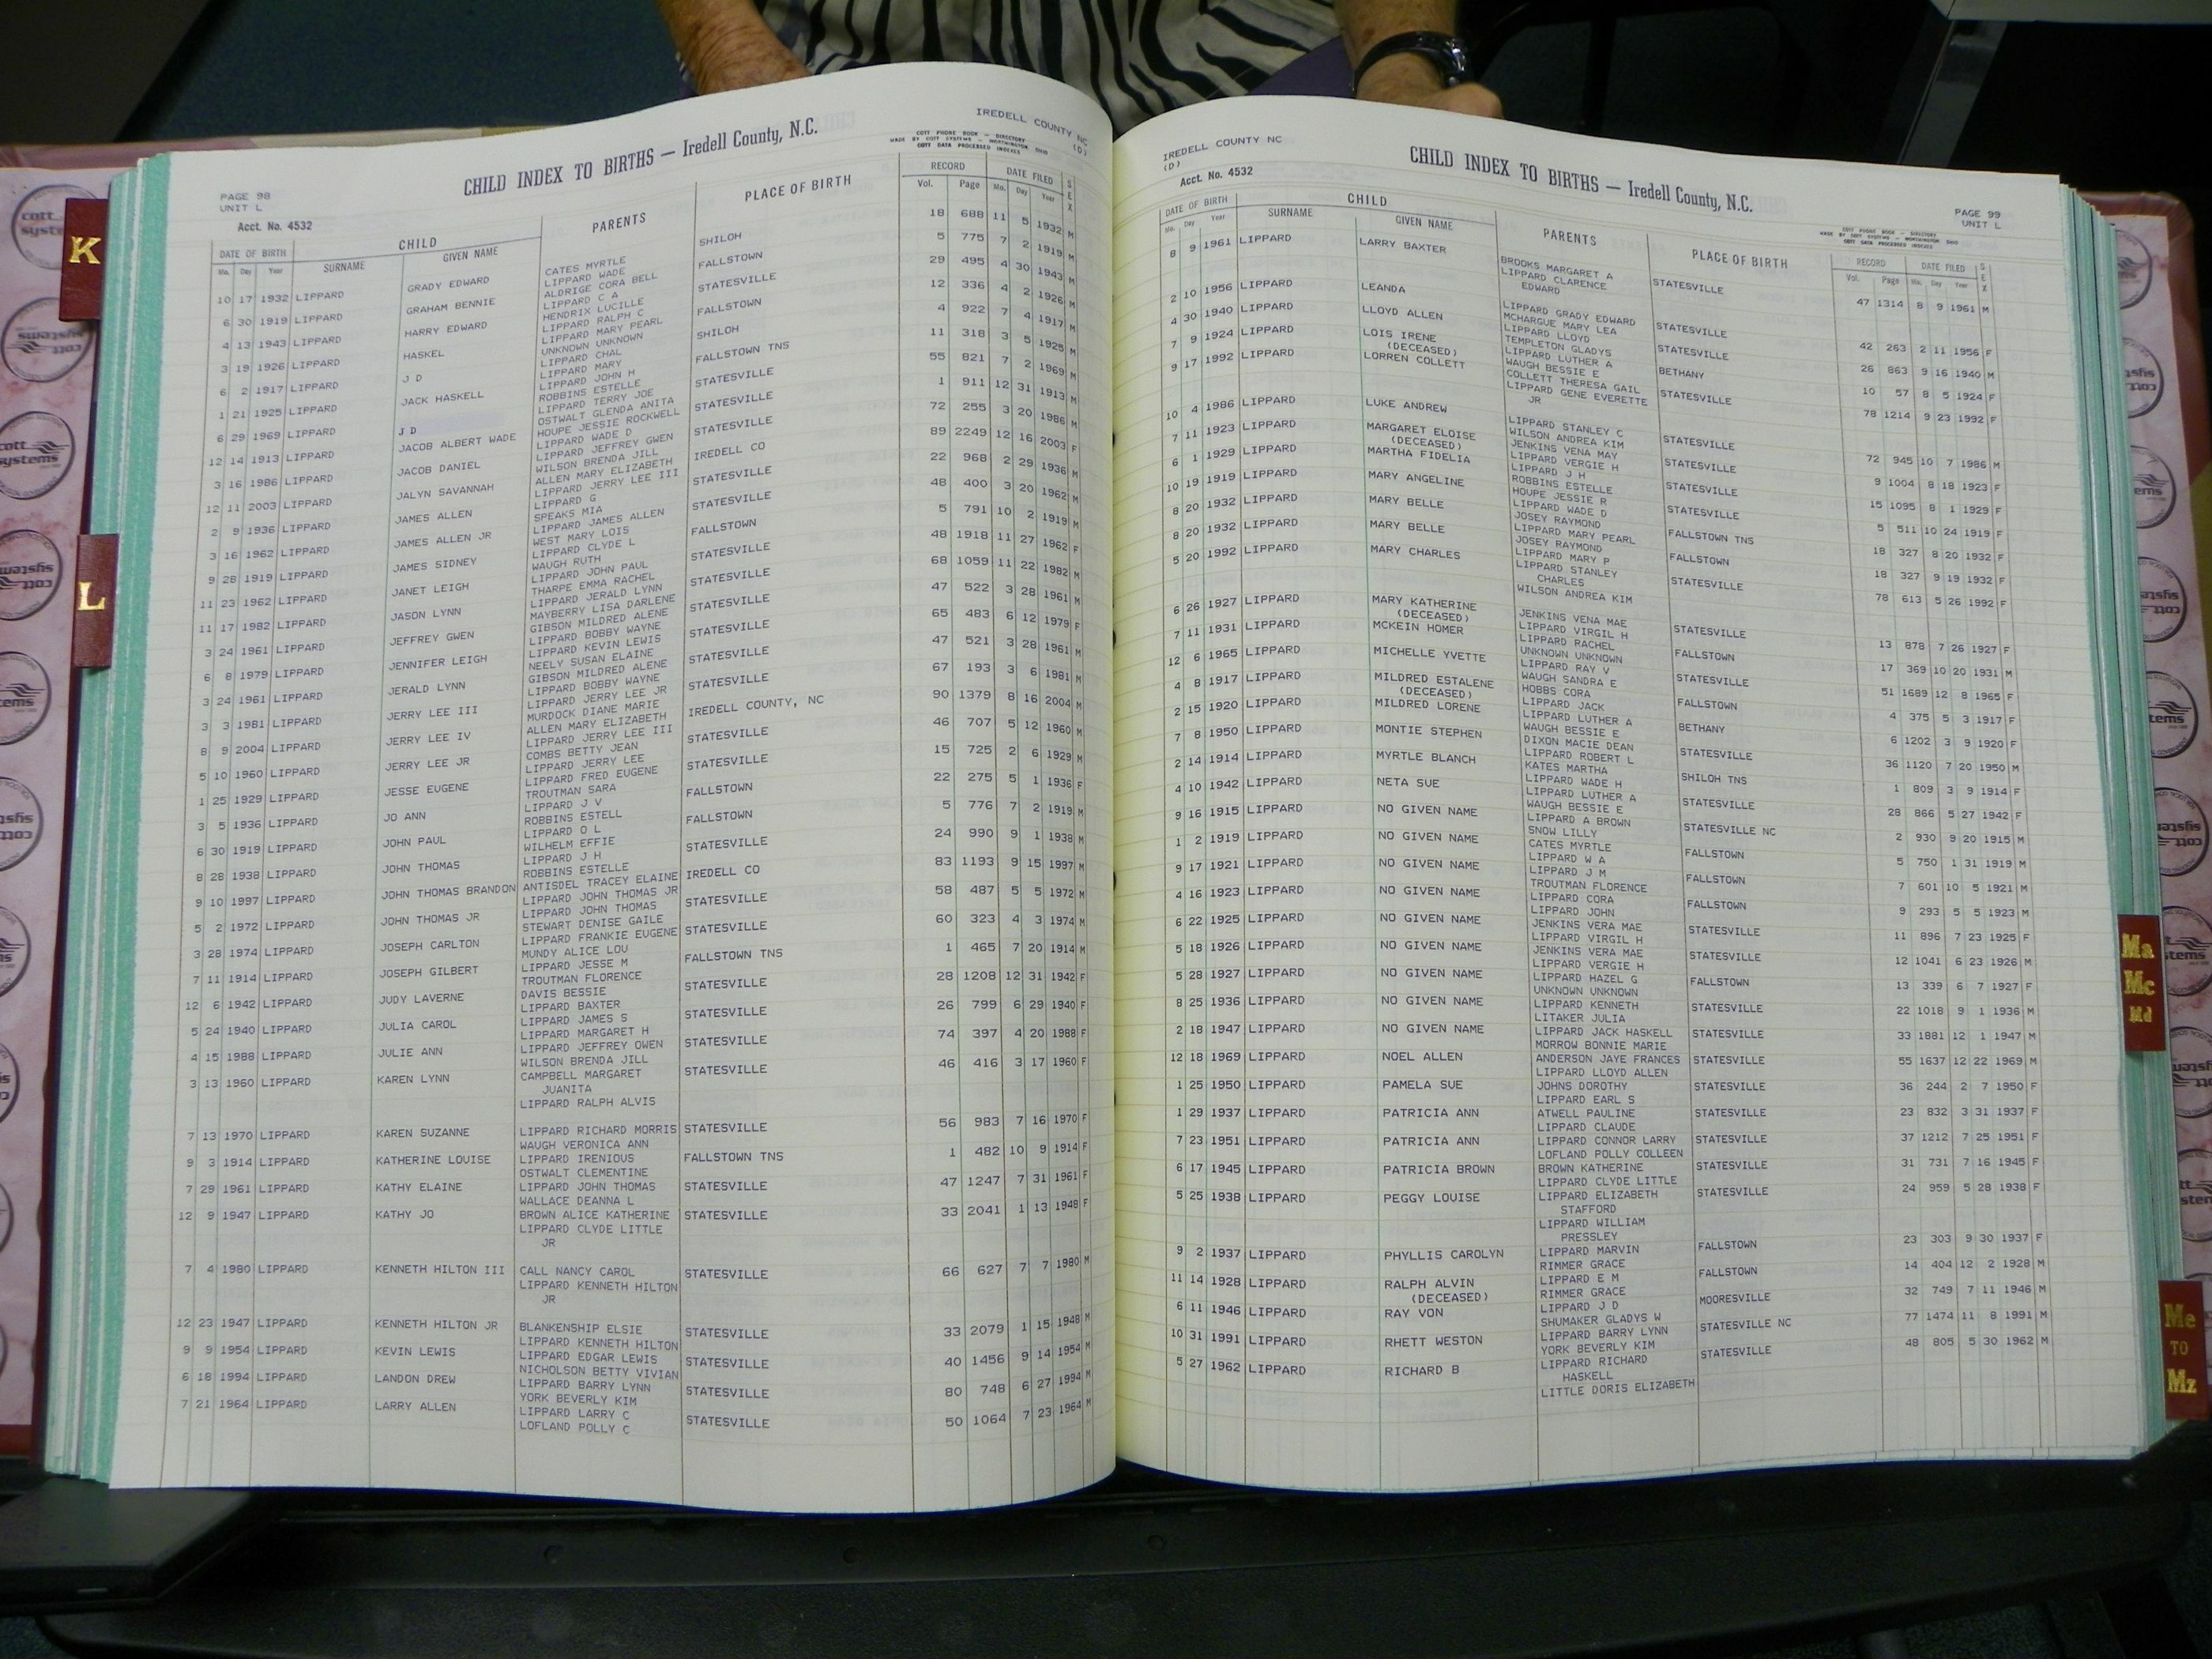 IREDELL COUNTY NC
(D)
CHILD INDEX TO BIRTHS — Iredell County, N.C.
COTT PHONE BOOK — DIRECTORY
MADE BY COTT SYSTEMS — WORTHINGTON OHIO
COTT DATA PROCESSED INDEXES
PAGE 98
UNIT L
Acct. No. 4532
DATE OF BIRTH CHILD PARENTS PLACE OF BIRTH RECORD DATE FILED SEX
Mo. Day Year SURNAME GIVEN NAME Vol. Page Mo. Day Year
10 17 1932 LIPPARD GRADY EDWARD CATES MYRTLE SHILOH 18 688 11 5 1932 M
LIPPARD WADE
6 30 1919 LIPPARD GRAHAM BENNIE ALDRIGE CORA BELL FALLSTOWN 5 775 7 2 1919 M
LIPPARD C A
4 13 1943 LIPPARD HARRY EDWARD HENDRIX LUCILLE STATESVILLE 29 495 4 30 1943 M
LIPPARD RALPH C
3 19 1926 LIPPARD HASKEL LIPPARD MARY PEARL FALLSTOWN 12 336 4 2 1926 M
UNKNOWN UNKNOWN
6 2 1917 LIPPARD J D LIPPARD CHAL SHILOH 4 922 7 4 1917 M
LIPPARD MARY
1 21 1925 LIPPARD JACK HASKELL LIPPARD JOHN H FALLSTOWN TNS 11 318 3 5 1925 M
ROBBINS ESTELLE
6 29 1969 LIPPARD J D LIPPARD TERRY JOE STATESVILLE 55 821 7 2 1969 M
OSTWALT GLENDA ANITA
12 14 1913 LIPPARD JACOB ALBERT WADE HOUPE JESSIE ROCKWELL STATESVILLE 1 911 12 31 1913 M
LIPPARD WADE D
3 16 1986 LIPPARD JACOB DANIEL LIPPARD JEFFREY GWEN STATESVILLE 72 255 3 20 1986 M
WILSON BRENDA JILL
12 11 2003 LIPPARD JALYN SAVANNAH ALLEN MARY ELIZABETH IREDELL CO 89 2249 12 16 2003 F
LIPPARD JERRY LEE III
2 9 1936 LIPPARD JAMES ALLEN LIPPARD G STATESVILLE 22 968 2 29 1936 M
SPEAKS MIA
3 16 1962 LIPPARD JAMES ALLEN JR LIPPARD JAMES ALLEN STATESVILLE 48 400 3 20 1962 M
WEST MARY LOIS
9 28 1919 LIPPARD JAMES SIDNEY LIPPARD CLYDE L FALLSTOWN 5 791 10 2 1919 M
WAUGH RUTH
11 23 1962 LIPPARD JANET LEIGH LIPPARD JOHN PAUL STATESVILLE 48 1918 11 27 1962 F
THARPE EMMA RACHEL
11 17 1982 LIPPARD JASON LYNN LIPPARD JERALD LYNN STATESVILLE 68 1059 11 22 1982 M
MAYBERRY LISA DARLENE
3 24 1961 LIPPARD JEFFREY GWEN GIBSON MILDRED ALENE STATESVILLE 47 522 3 28 1961 M
LIPPARD BOBBY WAYNE
6 8 1979 LIPPARD JENNIFER LEIGH LIPPARD KEVIN LEWIS STATESVILLE 65 483 6 12 1979 F
NEELY SUSAN ELAINE
3 24 1961 LIPPARD JERALD LYNN GIBSON MILDRED ALENE STATESVILLE 47 521 3 28 1961 M
LIPPARD BOBBY WAYNE
3 3 1981 LIPPARD JERRY LEE III LIPPARD JERRY LEE JR STATESVILLE 67 193 3 6 1981 M
MURDOCK DIANE MARIE
8 9 2004 LIPPARD JERRY LEE IV ALLEN MARY ELIZABETH IREDELL COUNTY, NC 90 1379 8 16 2004 M
LIPPARD JERRY LEE III
5 10 1960 LIPPARD JERRY LEE JR COMBS BETTY JEAN STATESVILLE 46 707 5 12 1960 M
LIPPARD JERRY LEE
1 25 1929 LIPPARD JESSE EUGENE LIPPARD FRED EUGENE STATESVILLE 15 725 2 6 1929 M
TROUTMAN SARA
3 5 1936 LIPPARD JO ANN LIPPARD J V FALLSTOWN 22 275 5 1 1936 F
ROBBINS ESTELL
6 30 1919 LIPPARD JOHN PAUL LIPPARD O L FALLSTOWN 5 776 7 2 1919 M
WILHELM EFFIE
8 28 1938 LIPPARD JOHN THOMAS LIPPARD J H STATESVILLE 24 990 9 1 1938 M
ROBBINS ESTELLE
9 10 1997 LIPPARD JOHN THOMAS BRANDON ANTISDEL TRACEY ELAINE IREDELL CO 83 1193 9 15 1997 M
LIPPARD JOHN THOMAS JR
5 2 1972 LIPPARD JOHN THOMAS JR LIPPARD JOHN THOMAS STATESVILLE 58 487 5 5 1972 M
STEWART DENISE GAILE
3 28 1974 LIPPARD JOSEPH CARLTON LIPPARD FRANKIE EUGENE STATESVILLE 60 323 4 3 1974 M
MUNDY ALICE LOU
7 11 1914 LIPPARD JOSEPH GILBERT LIPPARD JESSE M FALLSTOWN TNS 1 465 7 20 1914 M
TROUTMAN FLORENCE
12 6 1942 LIPPARD JUDY LAVERNE DAVIS BESSIE STATESVILLE 28 1208 12 31 1942 F
LIPPARD BAXTER
5 24 1940 LIPPARD JULIA CAROL LIPPARD JAMES S STATESVILLE 26 799 6 29 1940 F
LIPPARD MARGARET H
4 15 1988 LIPPARD JULIE ANN LIPPARD JEFFREY OWEN STATESVILLE 74 397 4 20 1988 F
WILSON BRENDA JILL
3 13 1960 LIPPARD KAREN LYNN CAMPBELL MARGARET STATESVILLE 46 416 3 17 1960 F
JUANITA
LIPPARD RALPH ALVIS
7 13 1970 LIPPARD KAREN SUZANNE LIPPARD RICHARD MORRIS STATESVILLE 56 983 7 16 1970 F
WAUGH VERONICA ANN
9 3 1914 LIPPARD KATHERINE LOUISE LIPPARD IRENIOUS FALLSTOWN TNS 1 482 10 9 1914 F
OSTWALT CLEMENTINE
7 29 1961 LIPPARD KATHY ELAINE LIPPARD JOHN THOMAS STATESVILLE 47 1247 7 31 1961 F
WALLACE DEANNA L
12 9 1947 LIPPARD KATHY JO BROWN ALICE KATHERINE STATESVILLE 33 2041 1 13 1948 F
LIPPARD CLYDE LITTLE
JR
7 4 1980 LIPPARD KENNETH HILTON III CALL NANCY CAROL STATESVILLE 66 627 7 7 1980 M
LIPPARD KENNETH HILTON
JR
12 23 1947 LIPPARD KENNETH HILTON JR BLANKENSHIP ELSIE STATESVILLE 33 2079 1 15 1948 M
LIPPARD KENNETH HILTON
9 9 1954 LIPPARD KEVIN LEWIS LIPPARD EDGAR LEWIS STATESVILLE 40 1456 9 14 1954 M
NICHOLSON BETTY VIVIAN
6 18 1994 LIPPARD LANDON DREW LIPPARD BARRY LYNN STATESVILLE 80 748 6 27 1994 M
YORK BEVERLY KIM
7 21 1964 LIPPARD LARRY ALLEN LIPPARD LARRY C STATESVILLE 50 1064 7 23 1964 M
LOFLAND POLLY C
IREDELL COUNTY NC
(D)
Acct. No. 4532
CHILD INDEX TO BIRTHS — Iredell County, N.C.
PAGE 99
UNIT L
COTT PHONE BOOK — DIRECTORY
MADE BY COTT SYSTEMS — WORTHINGTON OHIO
COTT DATA PROCESSED INDEXES
DATE OF BIRTH CHILD PARENTS PLACE OF BIRTH RECORD DATE FILED SEX
Mo. Day Year SURNAME GIVEN NAME Vol. Page Mo. Day Year
8 9 1961 LIPPARD LARRY BAXTER BROOKS MARGARET A STATESVILLE 47 1314 8 9 1961 M
LIPPARD CLARENCE
EDWARD
2 10 1956 LIPPARD LEANDA LIPPARD GRADY EDWARD STATESVILLE 42 263 2 11 1956 F
MCHARGUE MARY LEA
4 30 1940 LIPPARD LLOYD ALLEN LIPPARD LLOYD STATESVILLE 26 863 9 16 1940 M
TEMPLETON GLADYS
7 9 1924 LIPPARD LOIS IRENE LIPPARD LUTHER A BETHANY 10 57 8 5 1924 F
(DECEASED) WAUGH BESSIE E
9 17 1992 LIPPARD LORREN COLLETT COLLETT THERESA GAIL STATESVILLE 78 1214 9 23 1992 F
LIPPARD GENE EVERETTE
JR
10 4 1986 LIPPARD LUKE ANDREW LIPPARD STANLEY C STATESVILLE 72 945 10 7 1986 M
WILSON ANDREA KIM
7 11 1923 LIPPARD MARGARET ELOISE JENKINS VENA MAY STATESVILLE 9 1004 8 18 1923 F
(DECEASED) LIPPARD VERGIE H
6 1 1929 LIPPARD MARTHA FIDELIA LIPPARD J H STATESVILLE 15 1095 8 1 1929 F
ROBBINS ESTELLE
10 19 1919 LIPPARD MARY ANGELINE HOUPE JESSIE R FALLSTOWN TNS 5 511 10 24 1919 F
LIPPARD WADE D
8 20 1932 LIPPARD MARY BELLE JOSEY RAYMOND FALLSTOWN 18 327 8 20 1932 F
LIPPARD MARY PEARL
8 20 1932 LIPPARD MARY BELLE JOSEY RAYMOND STATESVILLE 18 327 9 19 1932 F
LIPPARD MARY P
5 20 1992 LIPPARD MARY CHARLES LIPPARD STANLEY 78 613 5 26 1992 F
CHARLES
WILSON ANDREA KIM
6 26 1927 LIPPARD MARY KATHERINE JENKINS VENA MAE STATESVILLE 13 878 7 26 1927 F
(DECEASED) LIPPARD VIRGIL H
7 11 1931 LIPPARD MCKEIN HOMER LIPPARD RACHEL FALLSTOWN 17 369 10 20 1931 M
UNKNOWN UNKNOWN
12 6 1965 LIPPARD MICHELLE YVETTE LIPPARD RAY V STATESVILLE 51 1689 12 8 1965 F
WAUGH SANDRA E
4 8 1917 LIPPARD MILDRED ESTALENE HOBBS CORA FALLSTOWN 4 375 5 3 1917 F
(DECEASED) LIPPARD JACK
2 15 1920 LIPPARD MILDRED LORENE LIPPARD LUTHER A BETHANY 6 1202 3 9 1920 F
WAUGH BESSIE E
7 8 1950 LIPPARD MONTIE STEPHEN DIXON MACIE DEAN STATESVILLE 36 1120 7 20 1950 M
LIPPARD ROBERT L
2 14 1914 LIPPARD MYRTLE BLANCH KATES MARTHA SHILOH TNS 1 809 3 9 1914 F
LIPPARD WADE H
4 10 1942 LIPPARD NETA SUE LIPPARD LUTHER A STATESVILLE 28 866 5 27 1942 F
WAUGH BESSIE E
9 16 1915 LIPPARD NO GIVEN NAME LIPPARD A BROWN STATESVILLE NC 2 930 9 20 1915 M
SNOW LILLY
1 2 1919 LIPPARD NO GIVEN NAME CATES MYRTLE FALLSTOWN 5 750 1 31 1919 M
LIPPARD W A
9 17 1921 LIPPARD NO GIVEN NAME LIPPARD J M FALLSTOWN 7 601 10 5 1921 M
TROUTMAN FLORENCE
4 16 1923 LIPPARD NO GIVEN NAME LIPPARD CORA FALLSTOWN 9 293 5 5 1923 M
LIPPARD JOHN
6 22 1925 LIPPARD NO GIVEN NAME JENKINS VERA MAE STATESVILLE 11 896 7 23 1925 F
LIPPARD VIRGIL H
5 18 1926 LIPPARD NO GIVEN NAME JENKINS VERA MAE STATESVILLE 12 1041 6 23 1926 M
LIPPARD VERGIE H
5 28 1927 LIPPARD NO GIVEN NAME LIPPARD HAZEL G FALLSTOWN 13 339 6 7 1927 F
UNKNOWN UNKNOWN
8 25 1936 LIPPARD NO GIVEN NAME LIPPARD KENNETH STATESVILLE 22 1018 9 1 1936 M
LITAKER JULIA
2 18 1947 LIPPARD NO GIVEN NAME LIPPARD JACK HASKELL STATESVILLE 33 1881 12 1 1947 M
MORROW BONNIE MARIE
12 18 1969 LIPPARD NOEL ALLEN ANDERSON JAYE FRANCES STATESVILLE 55 1637 12 22 1969 M
LIPPARD LLOYD ALLEN
1 25 1950 LIPPARD PAMELA SUE JOHNS DOROTHY STATESVILLE 36 244 2 7 1950 F
LIPPARD EARL S
1 29 1937 LIPPARD PATRICIA ANN ATWELL PAULINE STATESVILLE 23 832 3 31 1937 F
LIPPARD CLAUDE
7 23 1951 LIPPARD PATRICIA ANN LIPPARD CONNOR LARRY STATESVILLE 37 1212 7 25 1951 F
LOFLAND POLLY COLLEEN
6 17 1945 LIPPARD PATRICIA BROWN BROWN KATHERINE STATESVILLE 31 731 7 16 1945 F
LIPPARD CLYDE LITTLE
5 25 1938 LIPPARD PEGGY LOUISE LIPPARD ELIZABETH STATESVILLE 24 959 5 28 1938 F
STAFFORD
LIPPARD WILLIAM
PRESSLEY
9 2 1937 LIPPARD PHYLLIS CAROLYN LIPPARD MARVIN FALLSTOWN 23 303 9 30 1937 F
RIMMER GRACE
11 14 1928 LIPPARD RALPH ALVIN LIPPARD E M FALLSTOWN 14 404 12 2 1928 M
(DECEASED) RIMMER GRACE
6 11 1946 LIPPARD RAY VON LIPPARD J D MOORESVILLE 32 749 7 11 1946 M
SHUMAKER GLADYS W
10 31 1991 LIPPARD RHETT WESTON LIPPARD BARRY LYNN STATESVILLE NC 77 1474 11 8 1991 M
YORK BEVERLY KIM
5 27 1962 LIPPARD RICHARD B LIPPARD RICHARD STATESVILLE 48 805 5 30 1962 M
HASKELL
LITTLE DORIS ELIZABETH
K
L
Ma
Mc
Md
Me
TO
Mz
cott
systems